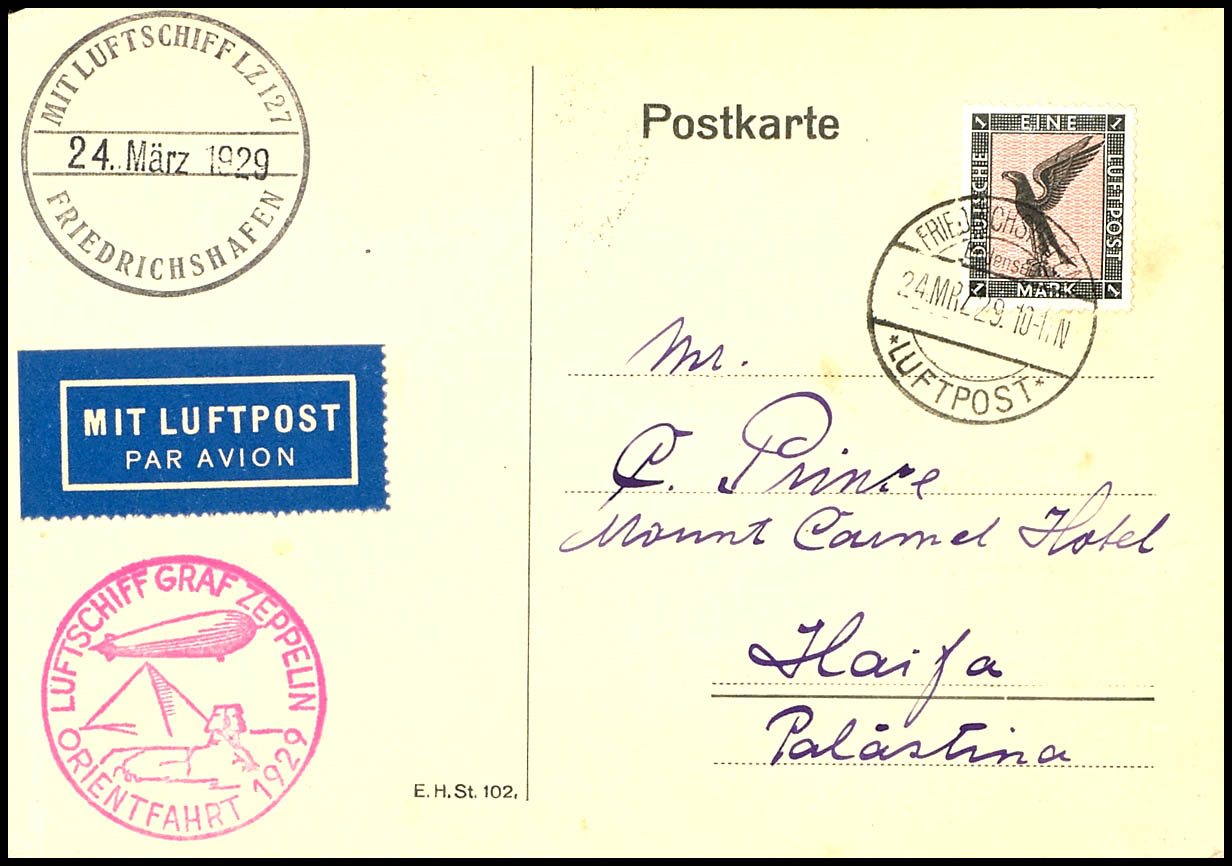 MIT LUFTSCHIFF LZ 127
24. März 1929
FRIEDRICHSHAFEN
Postkarte
1 EINE 1
DEUTSCHE
LUFTPOST
1 MARK 1
24.MRZ.29. 10-11N
*LUFTPOST*
MIT LUFTPOST
PAR AVION
Mr.
C. Prince
Mount Carmel Hotel
Haifa
Palästina
LUFTSCHIFF GRAF ZEPPELIN
ORIENTFAHRT 1929
E. H. St. 102,